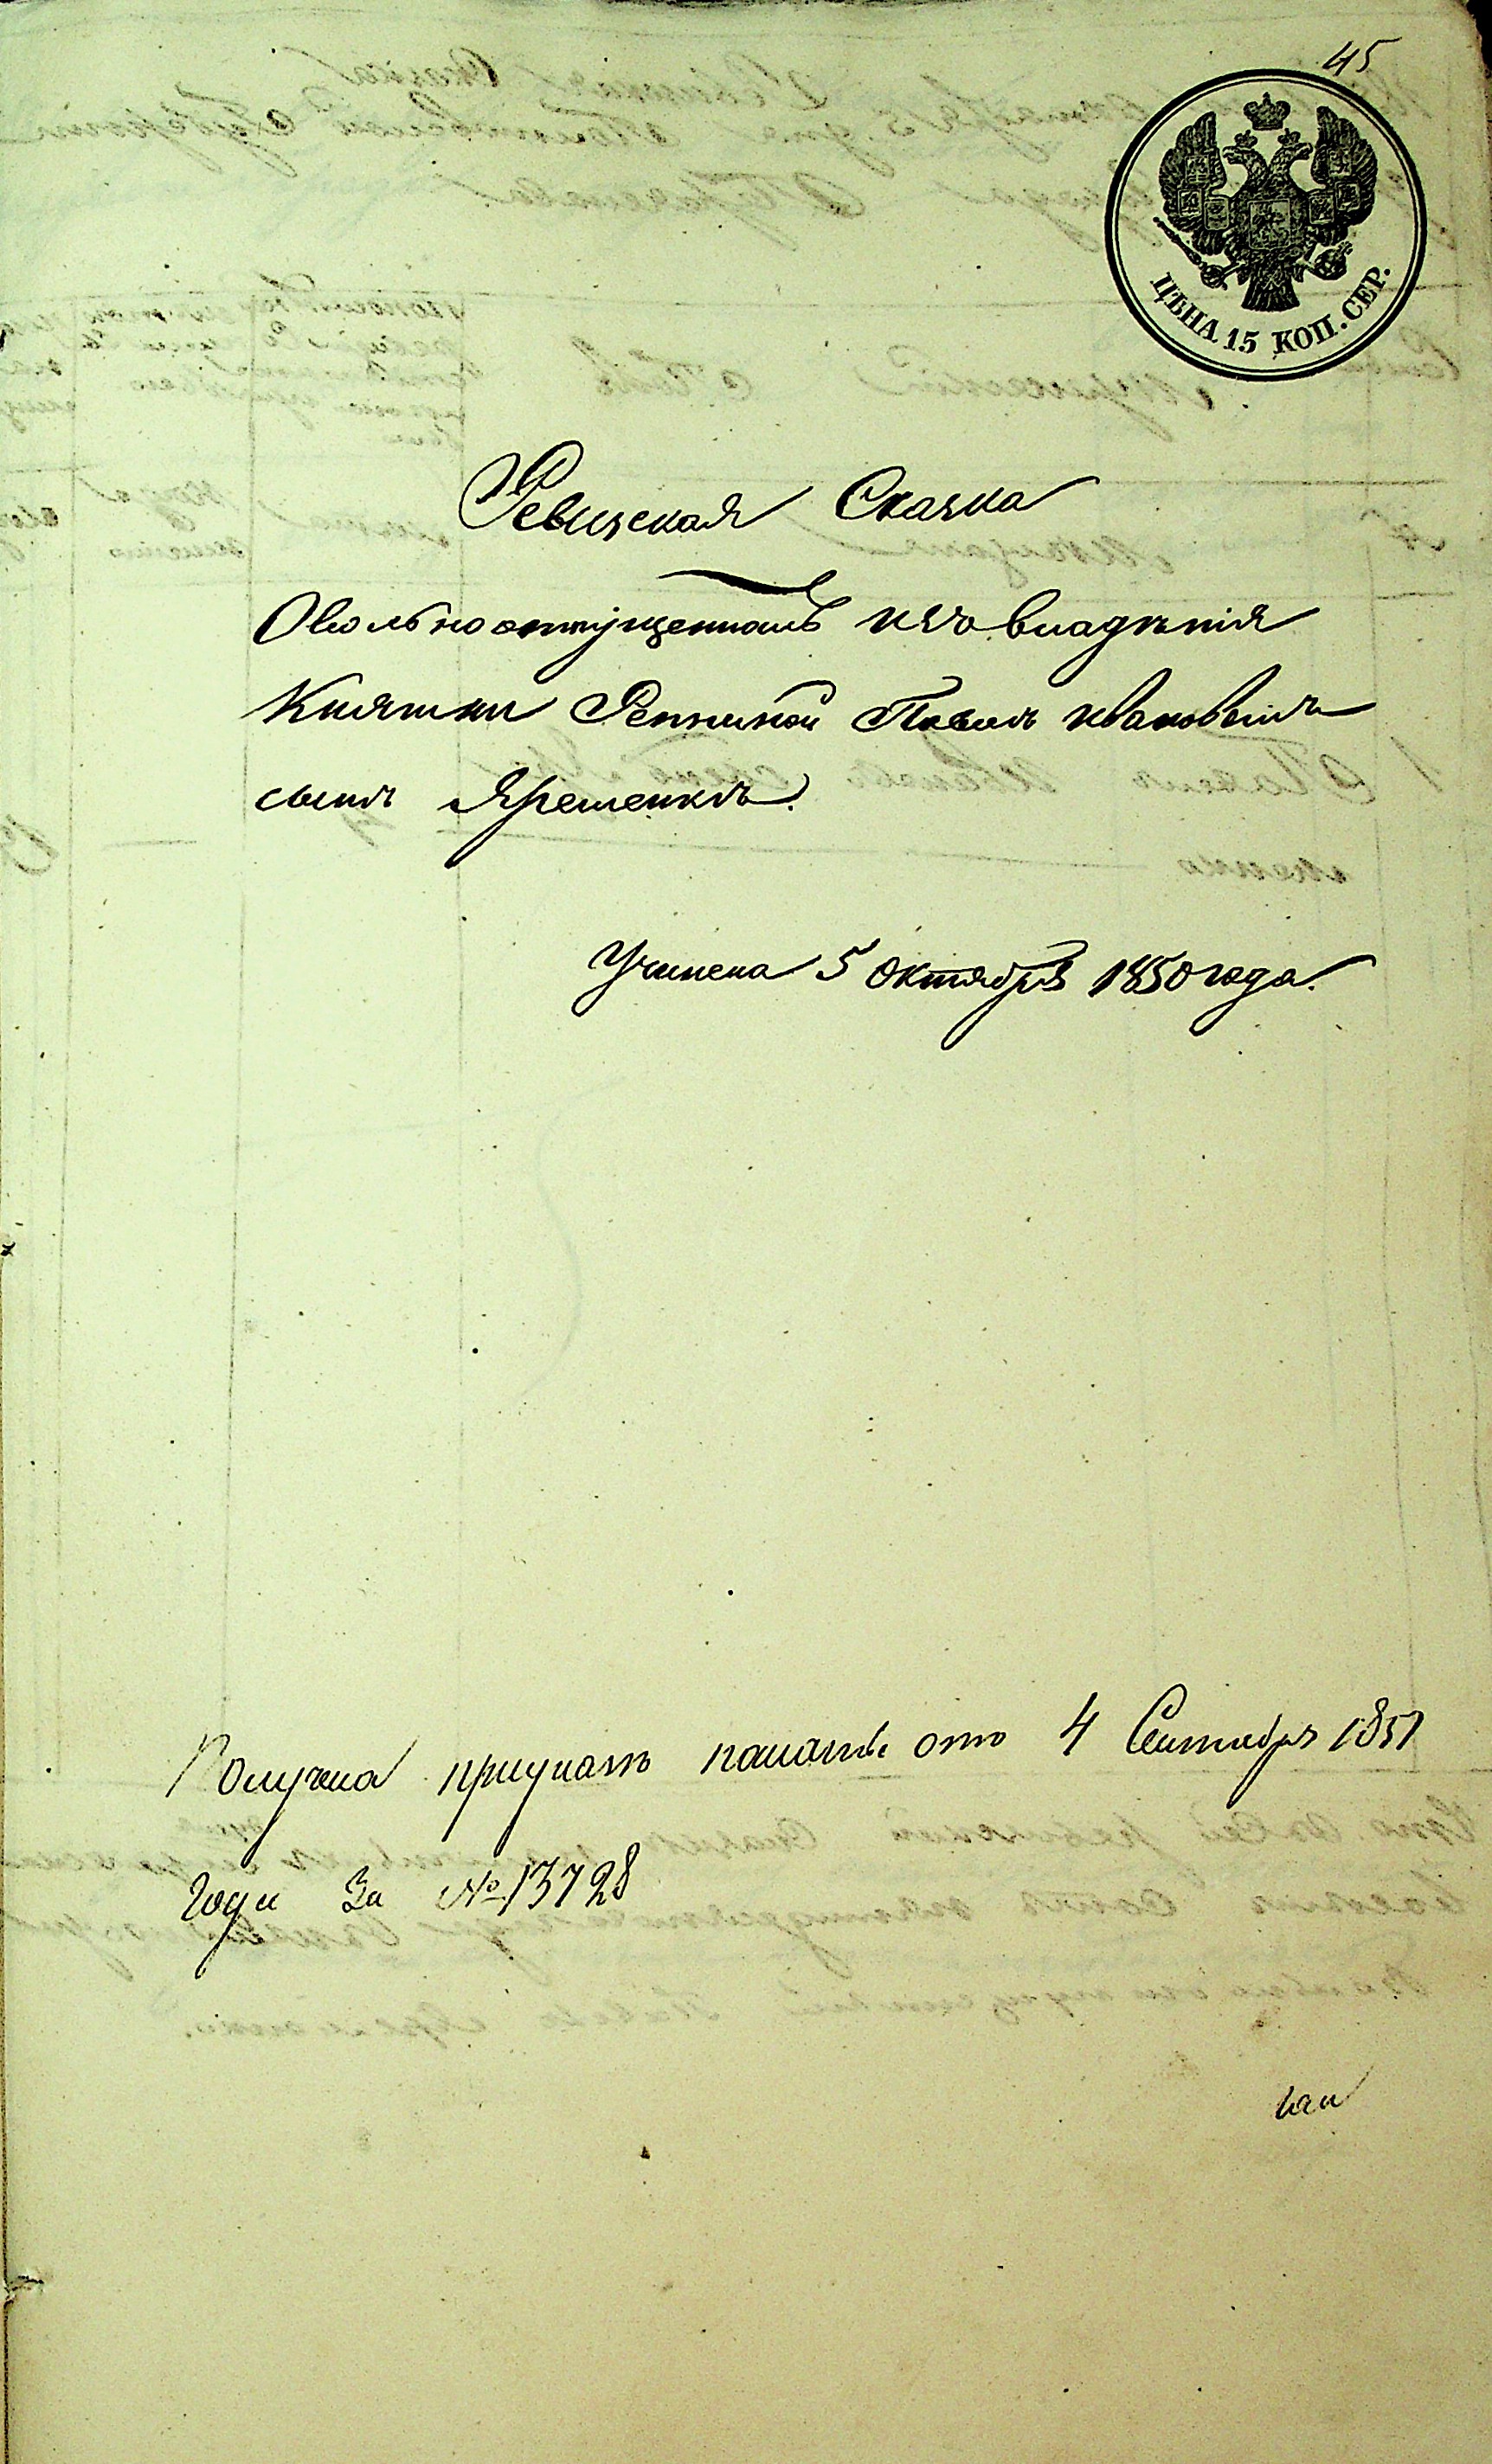 45
ЦѢНА 15 КОП. СЕР.
Ревизская Сказка
Овольноотпущенномъ изъ владѣнія
Княгини Репниной Павлѣ Ивановѣ
сынѣ Яременкѣ.
Учинена 5 октября 1850 года.
Получена приуказѣ палаты отъ 4 Сентября 1851
Года За № 13728